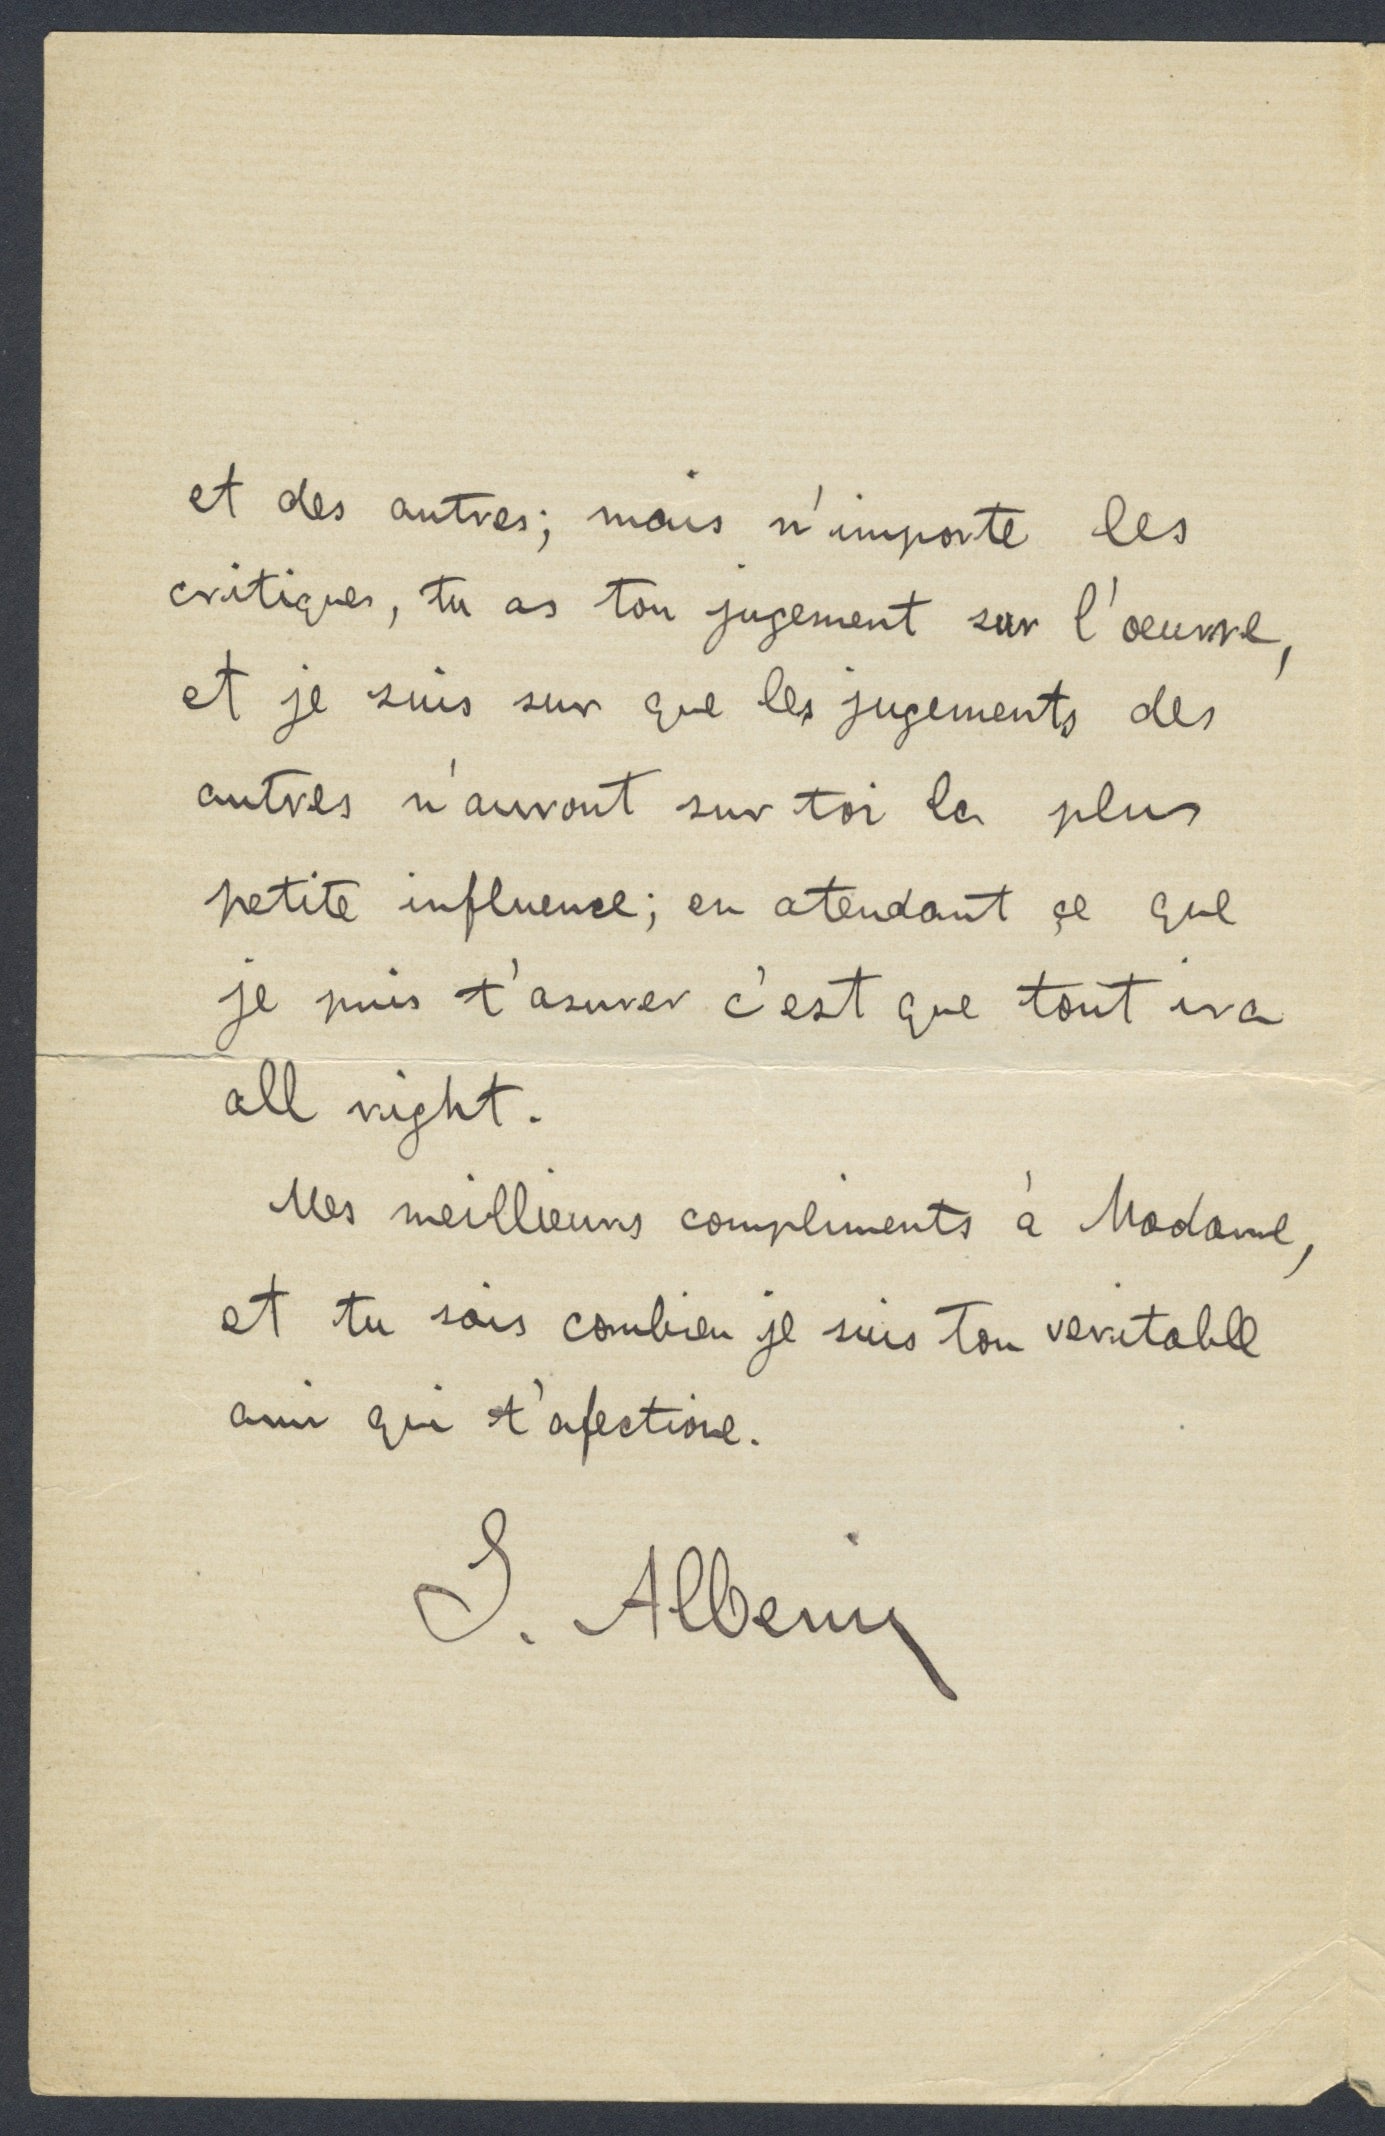 et des autres; mais n'importe les
critiques, tu as ton jugement sur l'oeuvre,
et je suis sur que les jugements des
autres n'auront sur toi la plus
petite influence; en atendant çe que
je puis t'asurer c'est que tout ira
all right.
Mes meillieurs compliments à Madame,
et tu sais combien je suis ton veritable
ami qui t'afectione.
I. Albeniz